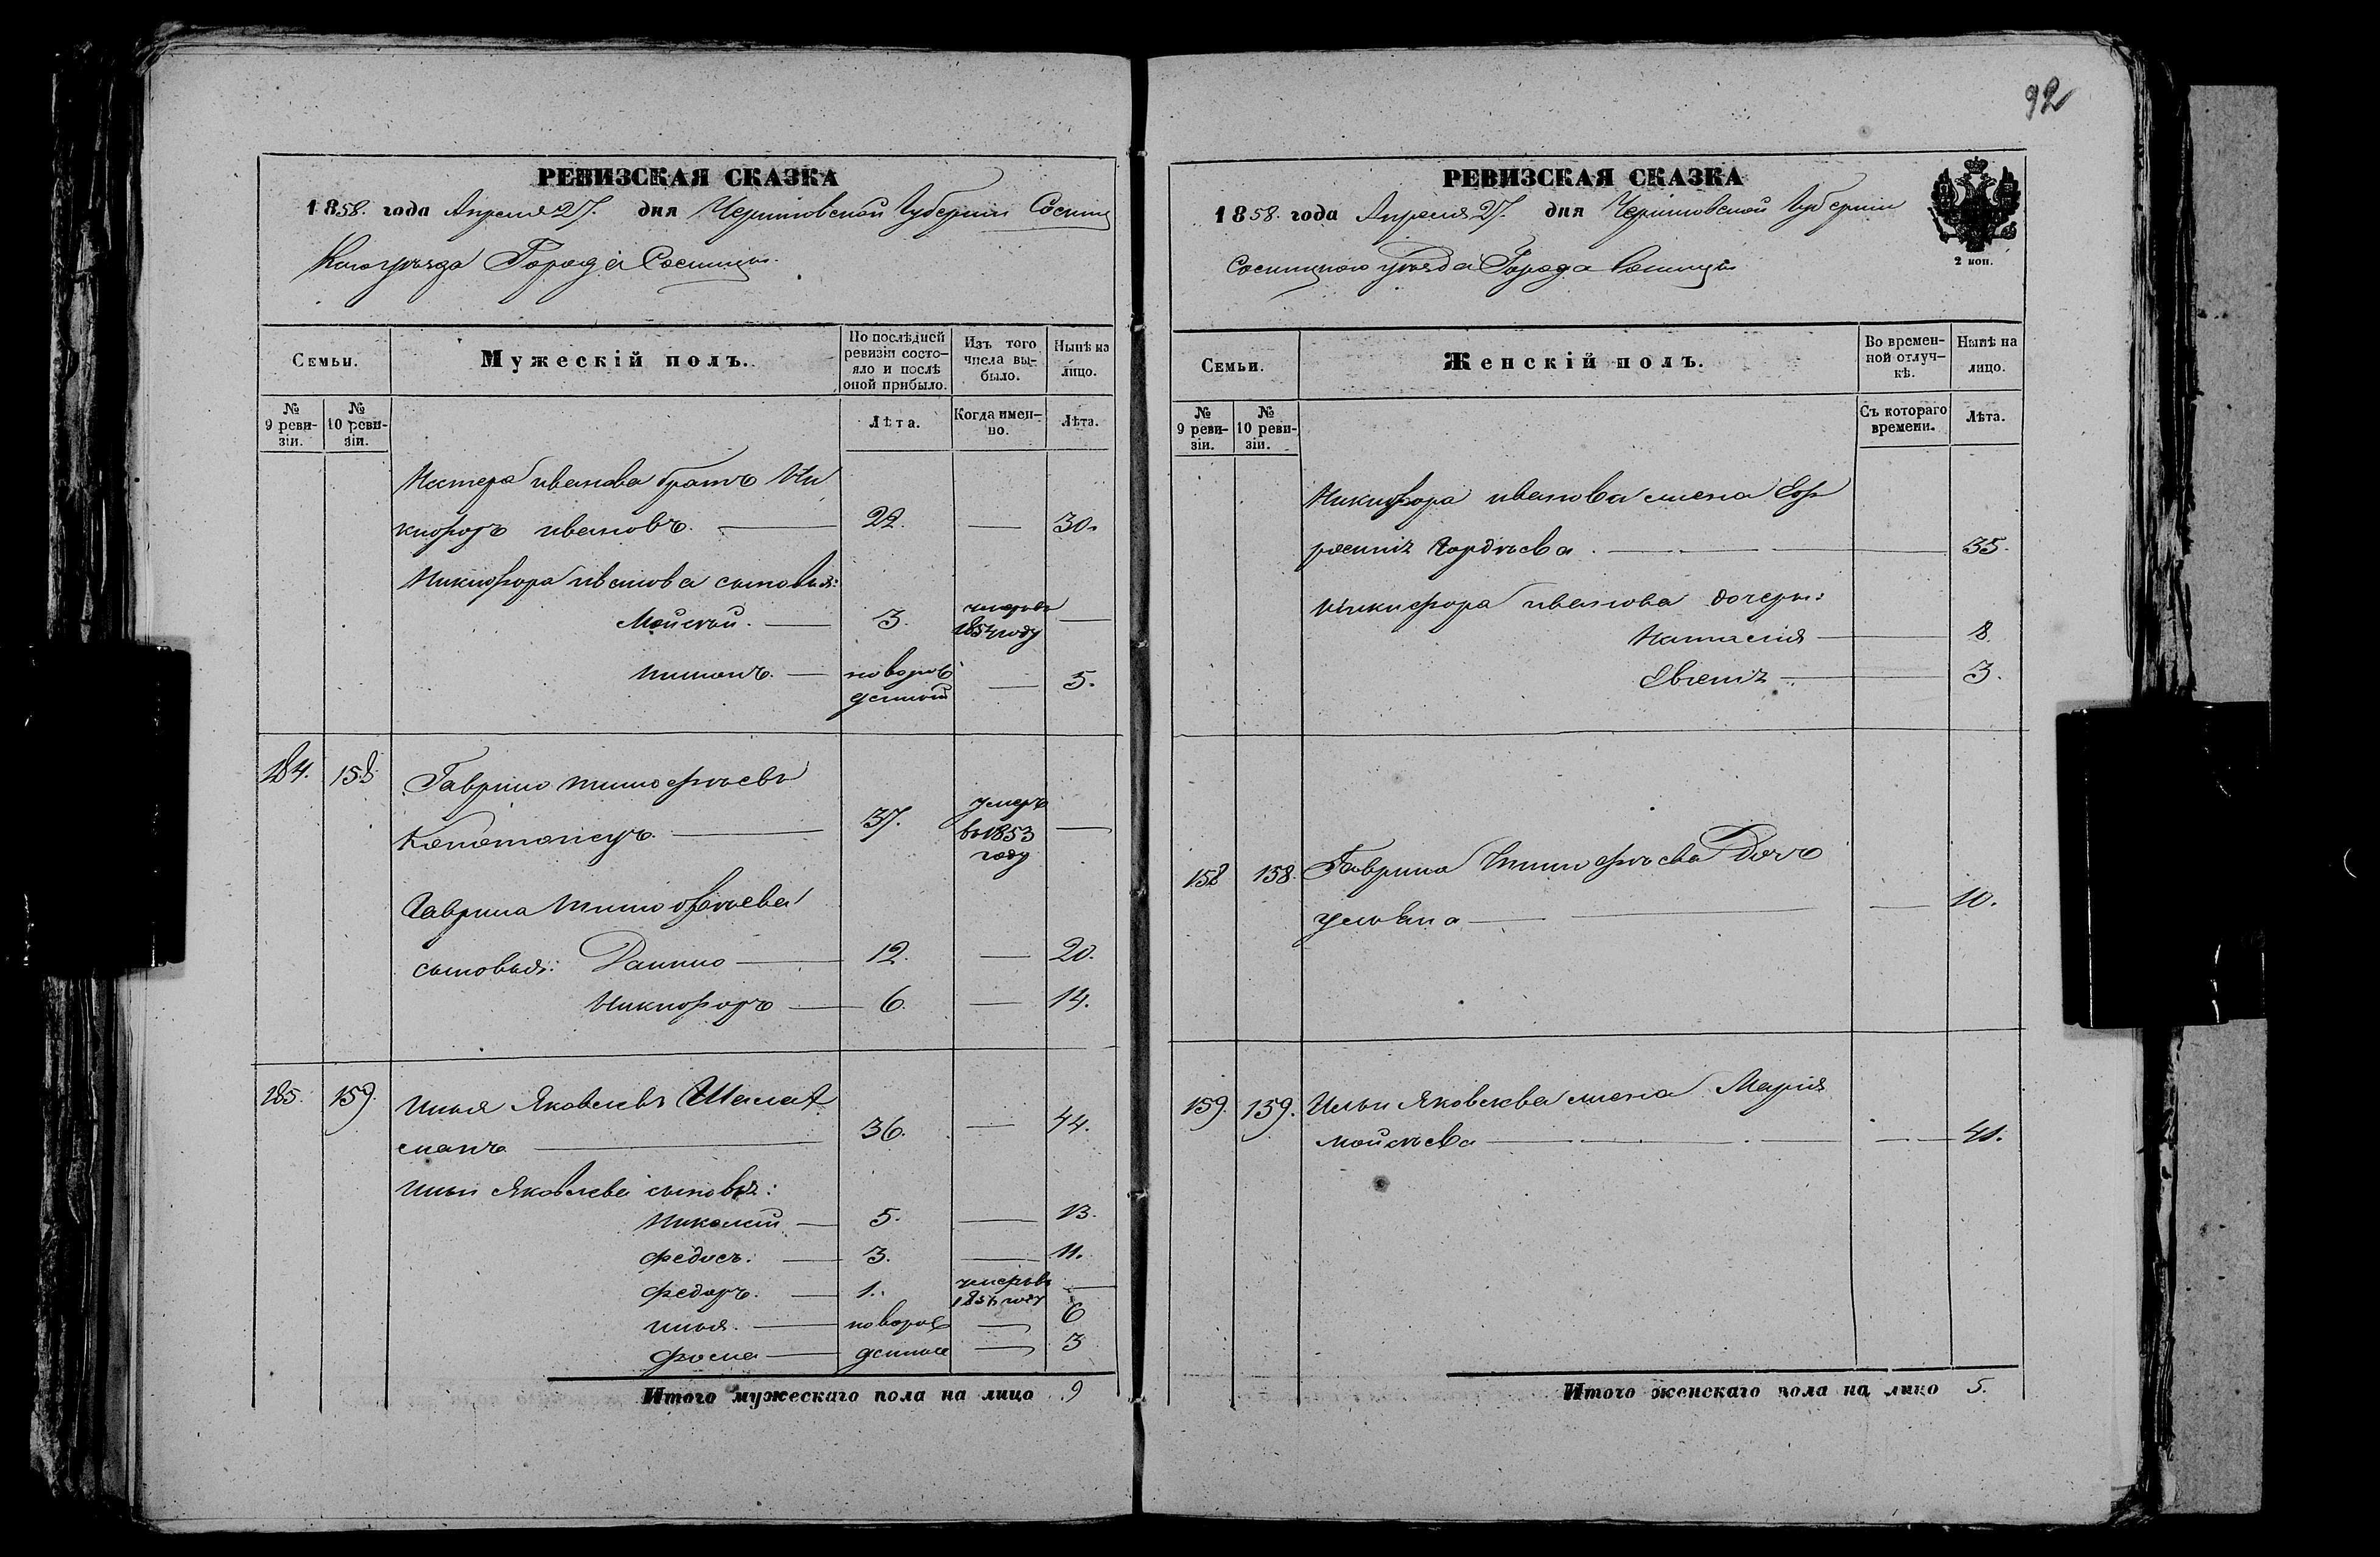 92
РЕВИЗСКАЯ СКАЗКА
1858. года Апреля 27. дня Черниговской Губернии Сосниц
каго уѣзда Города Сосницы.
Семьи.
Мужескій полъ.
По послѣдней ревизіи состояло и послѣ оной прибыло.
Изъ того числа выбыло.
Нынѣ на лицо.
№ 9 ревизіи.
№ 10 ревизіи.
Лѣта.
Когда именно.
Лѣта.
Нестера Иванова братъ Ни
кифоръ Ивановъ. 22. — 30.
Никифора Иванова сыновья:
Мойсей. 3. умеръ въ
году —
новорож
денный — 5.
184. 158 Гаврило Тимофѣевъ
37. умеръ въ 1853 году —
Гаврила Тимофѣева
сыновья: Данило 12. — 20.
Никифоръ 6. — 14.
185. 159. Илья Яковлевъ
36. — 44.
Ильи Яковлева сыновья:
Николай 5. — 13.
Федосъ. 3. — 11.
Федоръ. 1. умеръ въ
году —
Илья. новорож — 6
Фома денные — 3
Итого мужескаго пола на лицо 9
РЕВИЗСКАЯ СКАЗКА
1858. года Апреля 27. дня Черниговской Губернии
Сосницкаго уѣзда Города Сосницы
2 коп.
Семьи.
Женскій полъ.
Во временной отлучкѣ.
Нынѣ на лицо.
№ 9 ревизіи.
№ 10 ревизіи.
Съ котораго времени.
Лѣта.
Никифора Иванова жена Еф
росинія Гордѣева. 35.
Никифора Иванова дочери:
Наталія 8.
Евгенія 3.
158 158. Гаврила Тимофѣева Дочь
Ульяна — 10.
159. 159. Ильи Яковлева жена Марія
Мойсѣева — 41.
Итого женскаго пола на лицо 5.